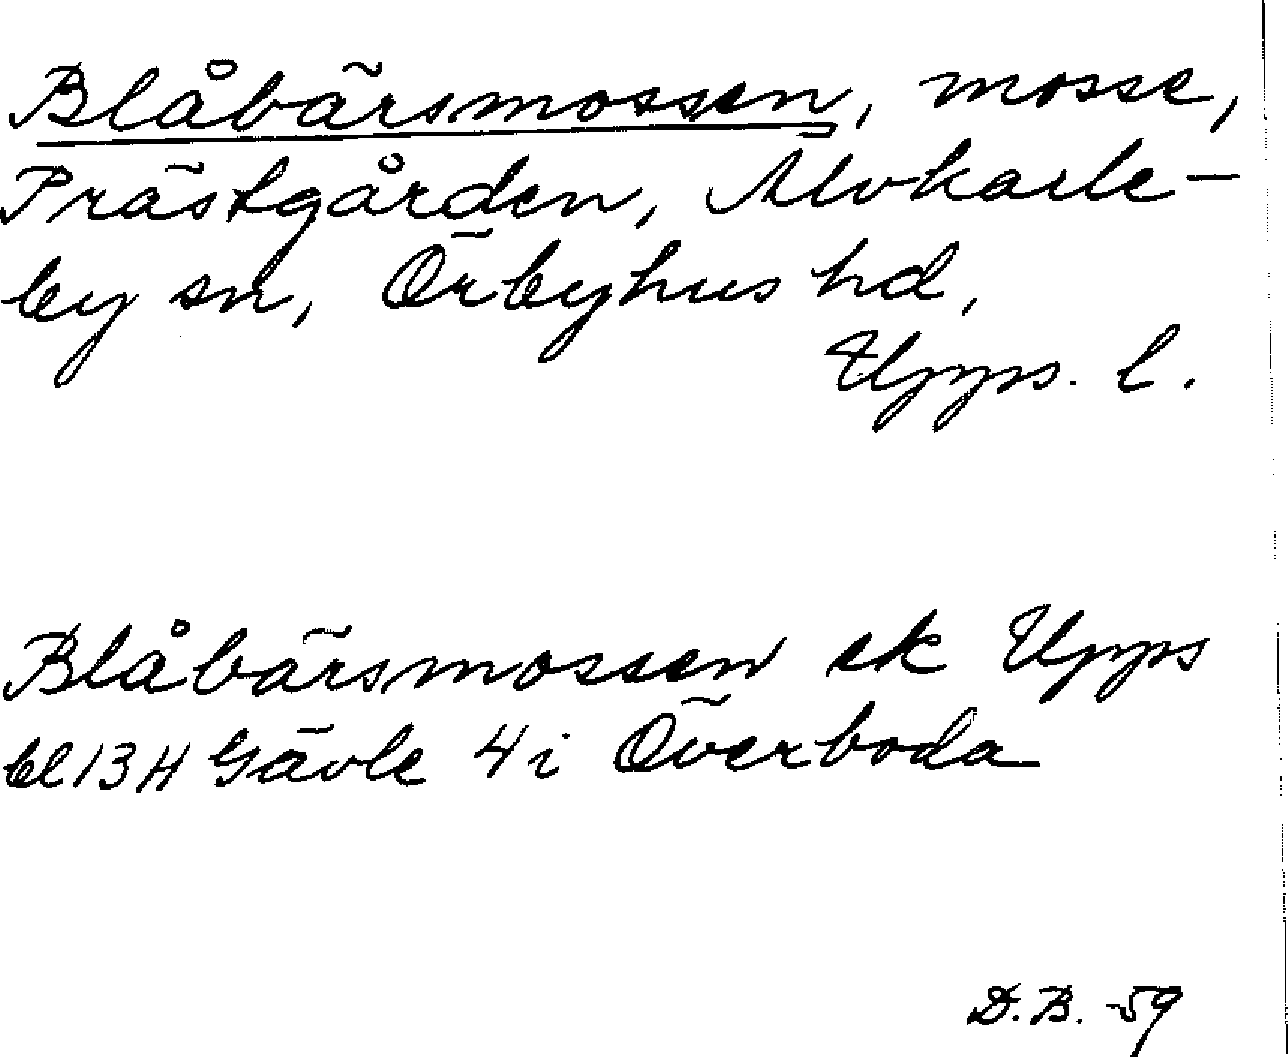 Blåbärsmossen, mosse,
Prästgården, Älvkarle-
by sn, Örbyhus hd,
Upps. l.
Blåbärsmossen ek Upps
bl 13 H Gävle 4 i Överboda
D.B. -59